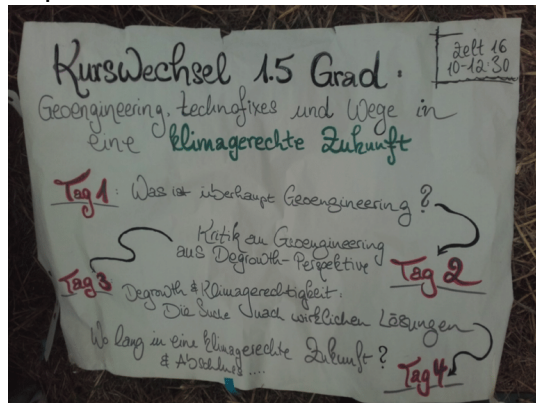 Kurswechsel 1.5 Grad.
Zelt 16
10-12:30
Geoengineering, technofixes und Wege in
eine klimagerechte Zukunft
Tag 1: Was ist überhaupt Geoengineering?
Kritik an Geoengineering
aus Degrowth-Perspektive
Tag 2
Tag 3
Degrowth & Klimagerechtigkeit:
Die Suche nach wirklichen Lösungen
Wo lang in eine klimagerechte Zukunft?
& Abschluss ....
Tag 4